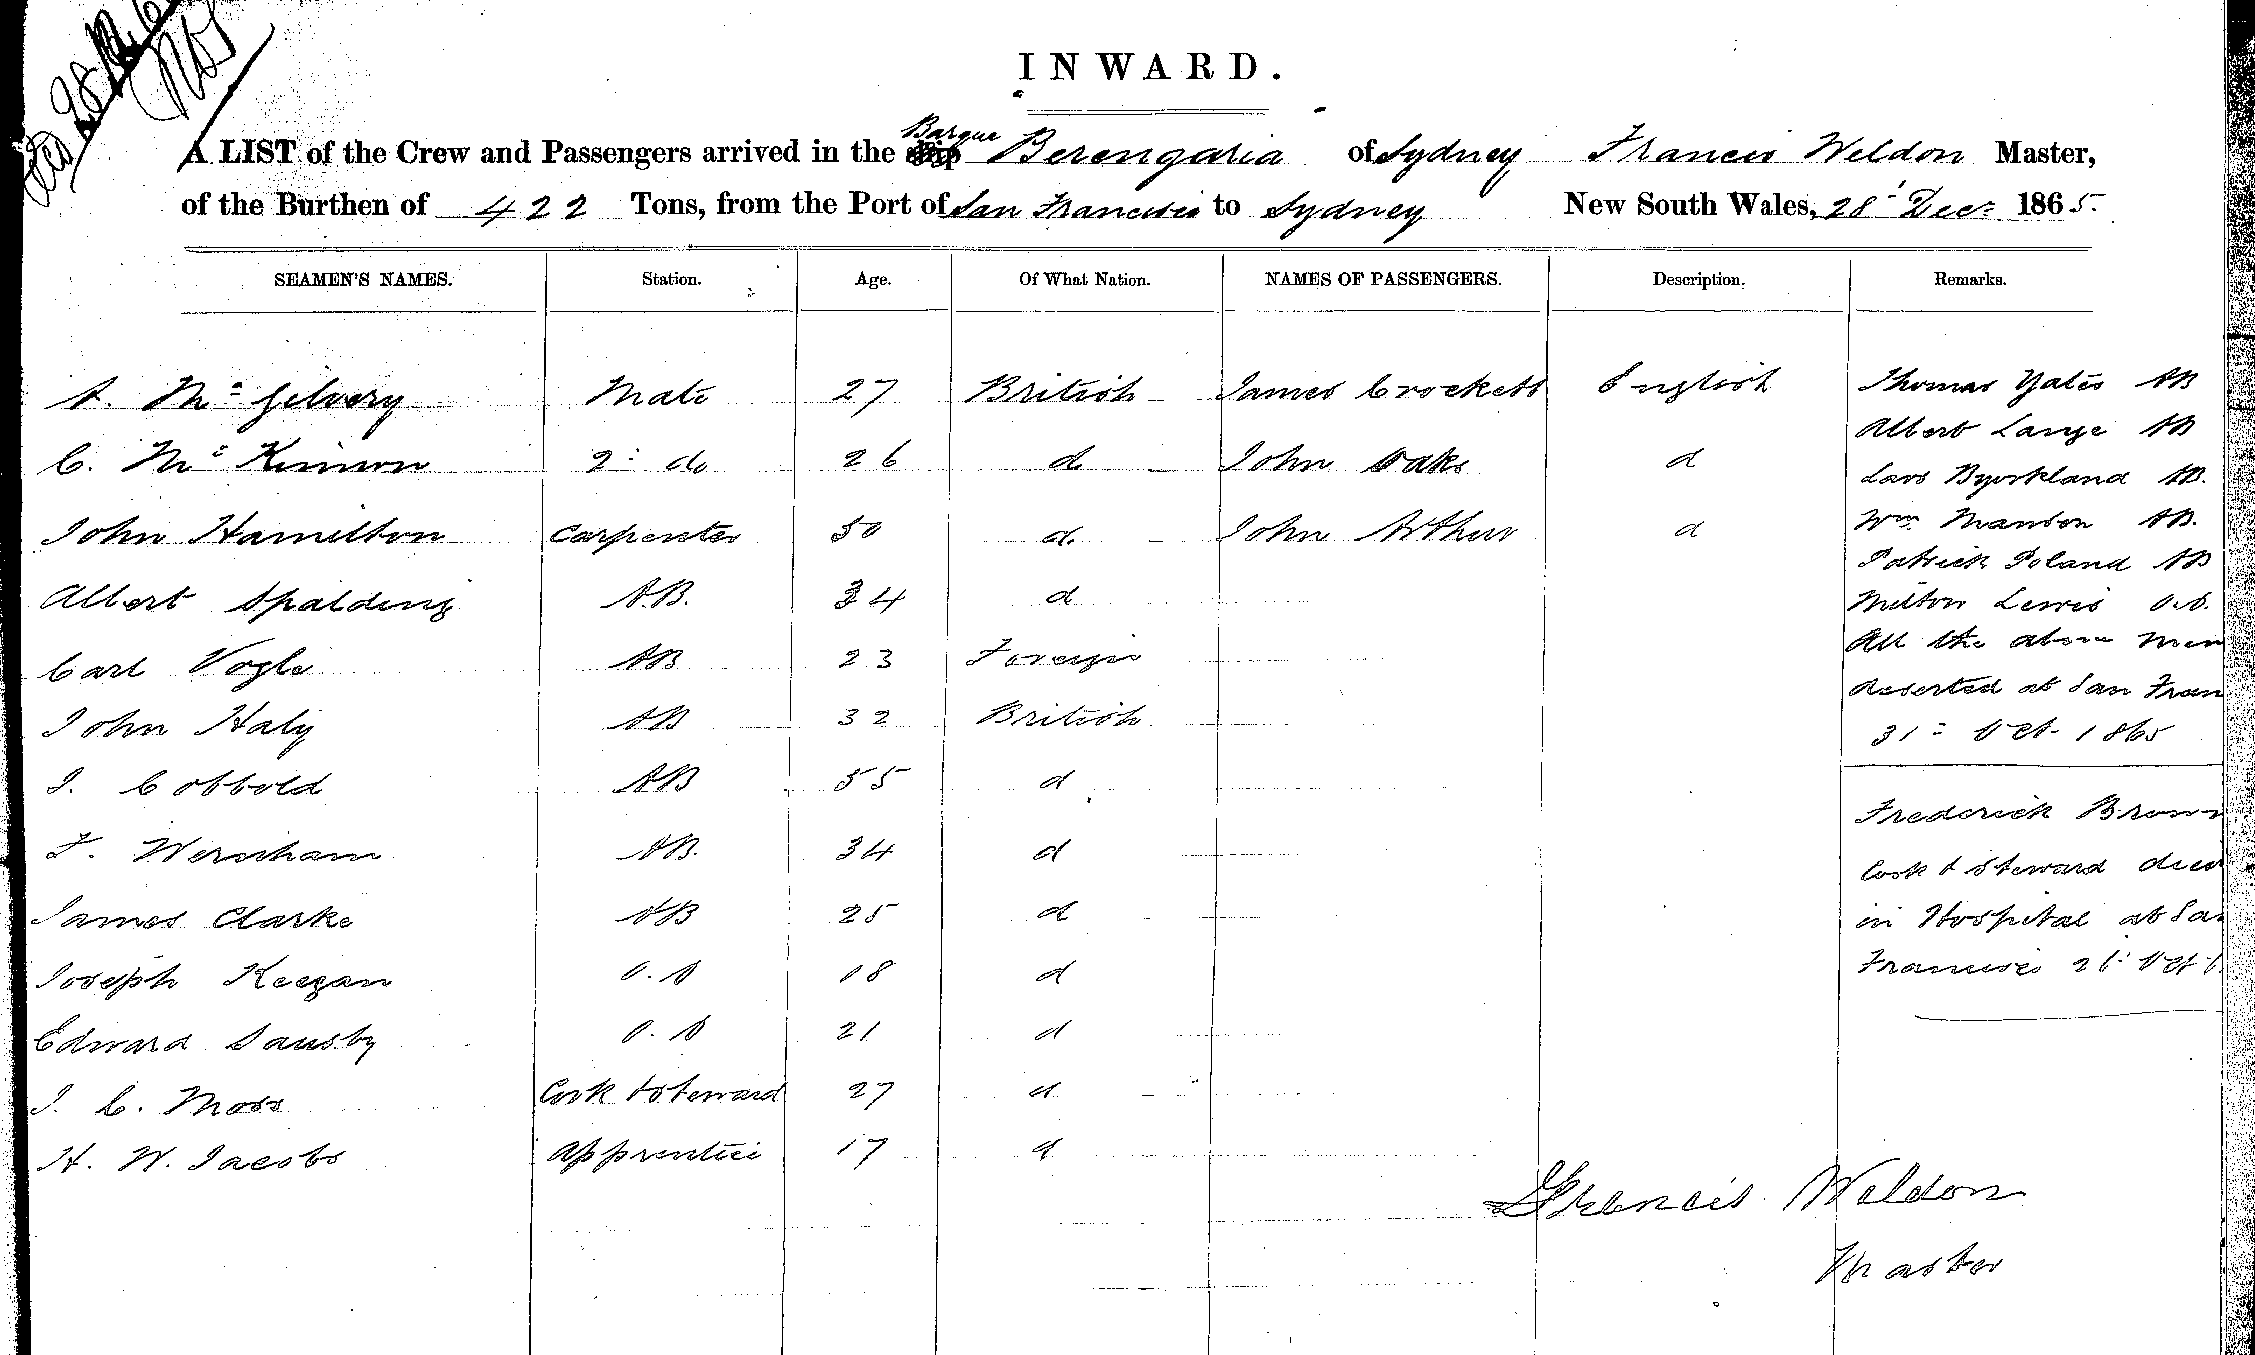 INWARD.
A LIST of the Crew and Passengers arrived in the Barque Berengaria of Sydney Francis Weldon Master,
of the Burthen of 422 Tons, from the Port of San Francisco to Sydney New South Wales, 28 Decr 1865.
SEAMEN'S NAMES. Station. Age. Of What Nation. NAMES OF PASSENGERS. Description. Remarks.
A. McGilvery Mate 27 British James Crockett English Thomas Yates AB
Albert Lange AB
C. McKinnon 2d do 26 d John Oaks d
Lars Byorkland AB.
John Hamilton Carpenter 50 d. John Arthur d Wm Manson AB.
Patrick Poland AB
Albert Spalding A.B. 34 d Milton Lewis O.S.
All the above men
Carl Vogle AB 23 Foreign
deserted at San Fran
John Haly AB 32 British 31st Oct. 1865
J. Cobbold AB 55 d
Frederick Brown
F. Wersham AB. 34 d Cook & Steward died
James Clarke AB 25 d in Hospital at Sa
Joseph Keegan O.S 18 d Francisco 26 Oct
Edward Sausby O.S 21 d
J. C. Moss Cook & Steward 27 d
H. W. Jacobs Apprentice 17 d
Francis Weldon
Master